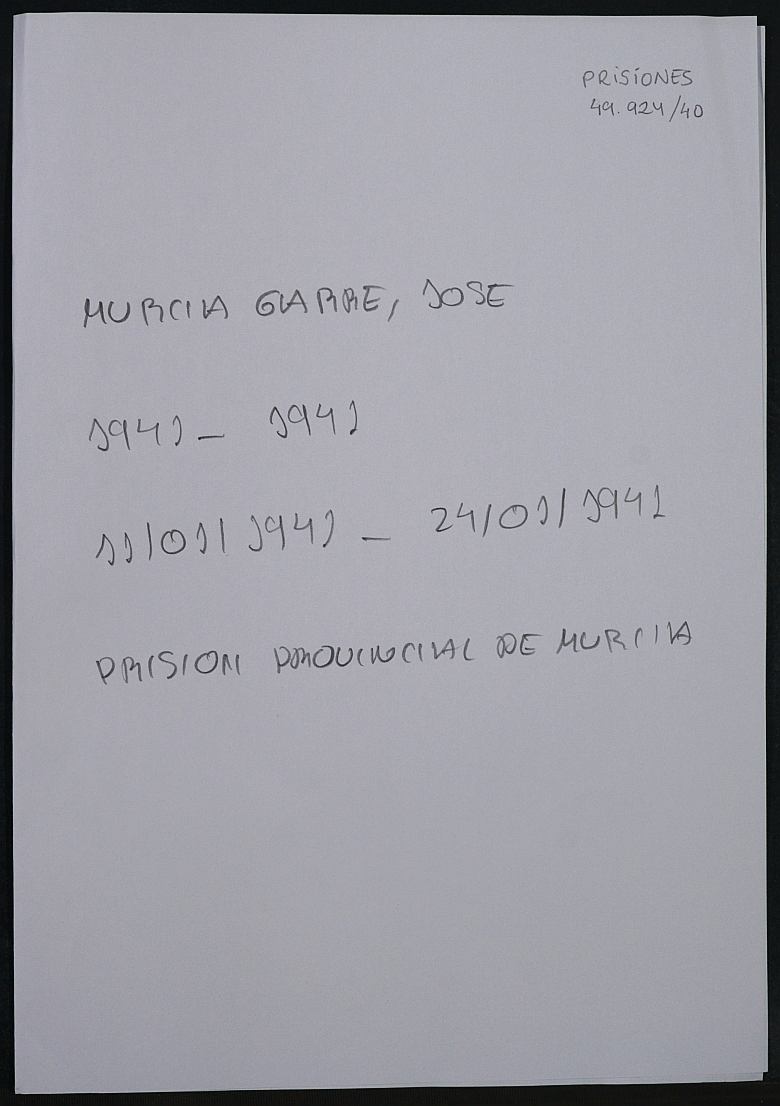 PRISIONES
49.924/40
MURCIA GARRE, JOSE
1941 - 1941
11/01/1941 - 24/01/1941
PRISION PROVINCIAL DE MURCIA